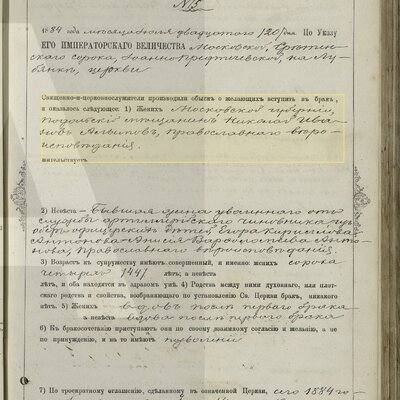 № 5
1884 года мѣсяца Іюля двадцатаго /20/ дня. По Указу
ЕГО ИМПЕРАТОРСКАГО ВЕЛИЧЕСТВА Московской, Срѣтен-
скаго сорока, Іоанно-Предтечевской, на Лу-
бянкѣ, церкви
Священно-и-церковнослужители производили обыскъ о желающихъ вступить въ бракъ,
и оказалось слѣдующее: 1) Женихъ Московской губерніи,
Подольскій мѣщанинъ Николай Ива-
новъ, православнаго вѣро-
исповѣданія.
жительствуетъ
2) Невѣста — Бывшая жена уволеннаго отъ
службы артиллерійскаго чиновника изъ
оберъ-офицерскихъ дѣтей Егора Кириллова
Антонова Анисія Варѳоломеева Антоно-
нова, Православнаго вѣроисповѣданія.
3) Возрастъ къ супружеству имѣютъ совершенный, и именно: женихъ сорока
четырехъ /44/ лѣтъ, а невѣста
лѣтъ, и оба находятся въ здравомъ умѣ. 4) Родства между ними духовнаго, или плот-
скаго родства и свойства, возбраняющаго по установленію Св. Церкви бракъ, никакого
нѣтъ. 5) Женихъ вдовъ послѣ перваго брака
а невѣста вдова послѣ перваго брака
6) Къ бракосочетанію приступаютъ они по своему взаимному согласію и желанію, а не
по принужденію, и на то имѣютъ позволеніе
7) По троекратному оглашенію, сдѣланному въ означенной Церкви, сего 1884 го-